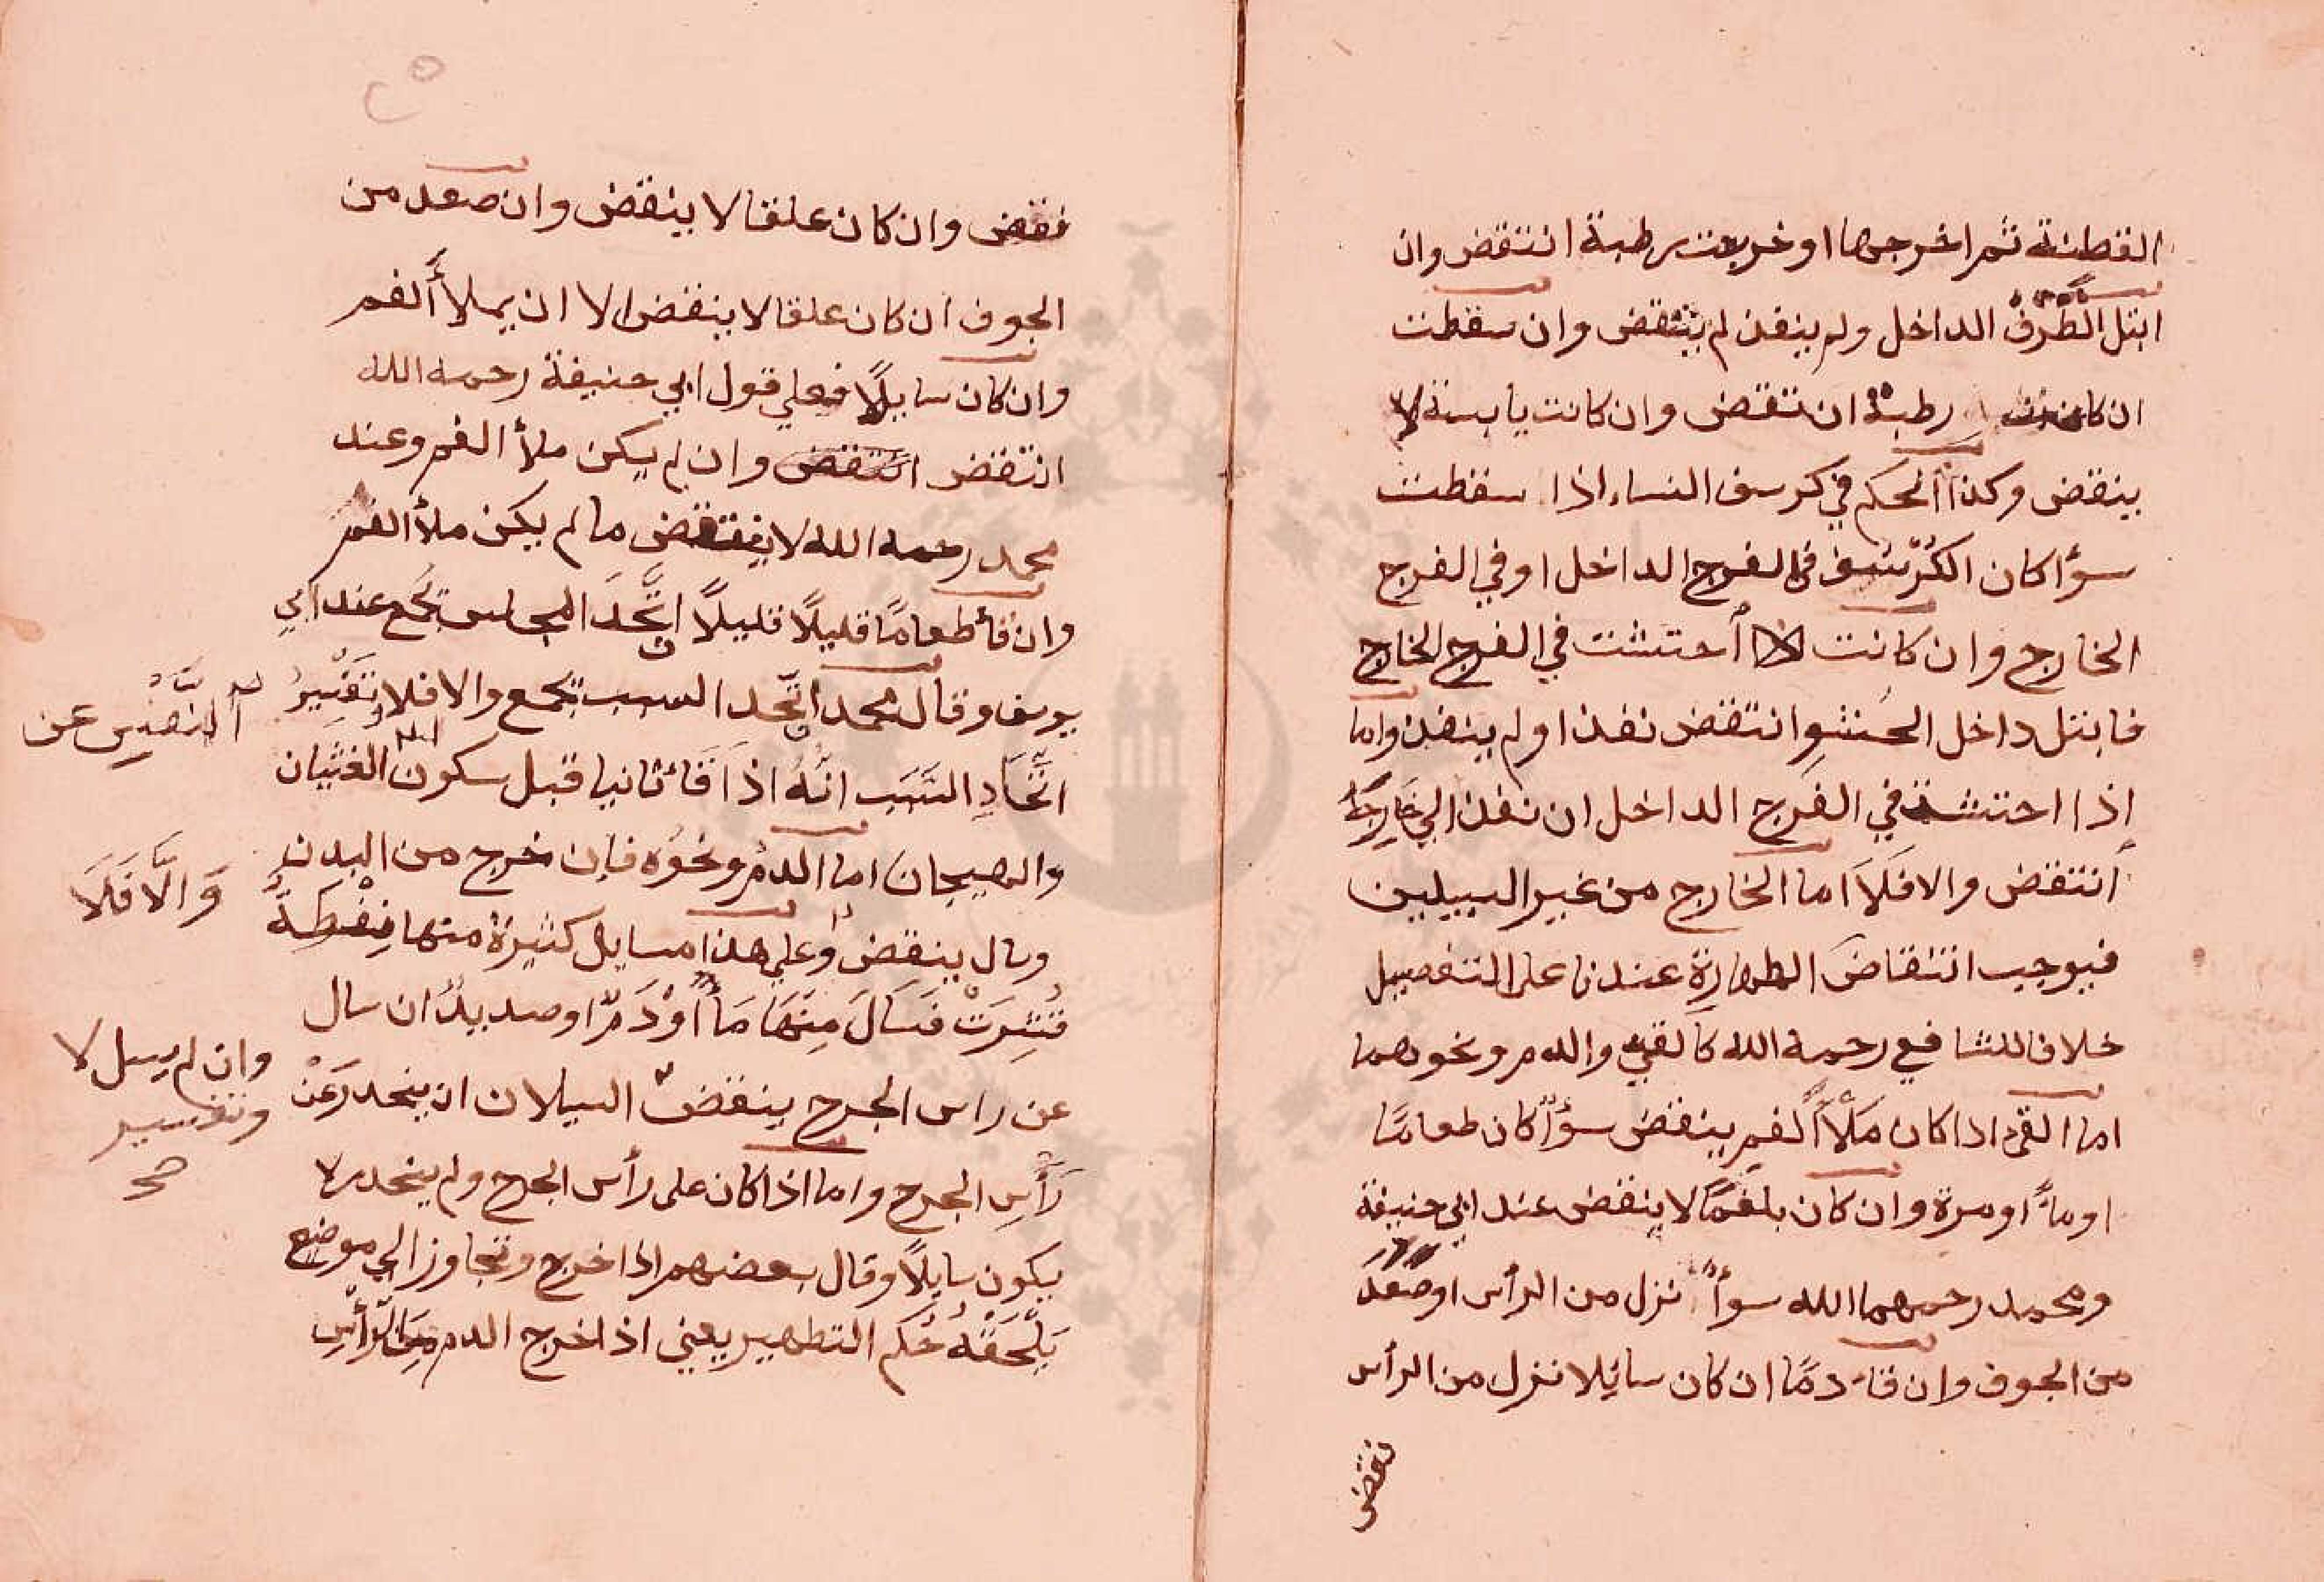 القطنة ثم اخرجها او خرجت رطبة انتقض وان
ابتل الطرف الداخل ولم ينفذ لم ينتقض وان سقطت
ان كانت رطبة انتقض وان كانت يابسة لا
ينقض وكذا الحكم في كرسف النساء اذا سقطت
سوٓا كان الكُرْسُف في الفرج الداخل او في الفرج
الخارج وان كانت احتشت في الفرج الخارج
فابتل داخل الحَشْوِ انتقض نفذ او لم ينفذ واما
اذا احتشت في الفرج الداخل ان نفذ الي خَارِجَهُ
انتقض والا فَلَا اما الخارج من غير السبيلين
فيوجب انتقاضَ الطهارة عندنا على التفصيل
خلافا للشافعي رحمه الله كالقيء والدم ونحوهما
اما القيء اذا كان مَلْأَ الفم ينقض سوٓاً كان طعامًا
او ماءً او مرة وان كان بلغمًا لا ينقض عند ابي حنيفة
ومحمد رحمهما الله سوأً نزل من الرأس او صَعَدَ
من الجوف وان قاء دمًا ان كان سائلا نزل من الرأس
نقض
نقض وان كان علقا لا ينقض وان صعد من
الجوف ان كان علقا لا ينقض الا ان يملأَ الفم
وان كان سايلًا فعلي قول ابي حنيفة رحمه الله
انتقض انتقض وان لم يكن ملأ الفم وعند
محمد رحمه الله لا ينتقض ما لم يكن ملأ الفم
وان قأ طعامًا قليلًا قليلًا اتَّحَدَ المجلس يجمع عند ابي
يوسف وقال محمد اتّحد السبب يجمع والا فلا وتَفْسِيرُ
اتّحَادِ السَّبَبِ انّهُ اذَا قَأ ثانيا قبل سكون الغثيان
والهيجان اما الدم ونحوُه فإن خرج من البدن
وسال ينقض وعلي هذا مسايل كثيرة منها نِفْطَةٌ
قُشِرَتْ فَسَالَ مِنْهَا مَاأً اوْ دَمٌ او صديدٌ ان سال
عن راس الجرح ينقض السيلان ان ينحدرَ عَنْ
رَأسِ الجرح واما اذا كان على رأس الجرح ولم ينحدر لا
يكون سايلًا وقال بعضهم اذا خرج وتجاوز الي موضع
يَلْحَقُهُ حُكم التطهير يعني اذا خرج الدم مِنَ الرّأسِ
النفس عن
وَالَّا فَلَا
وان لم يسل لا
وتفسير
صح